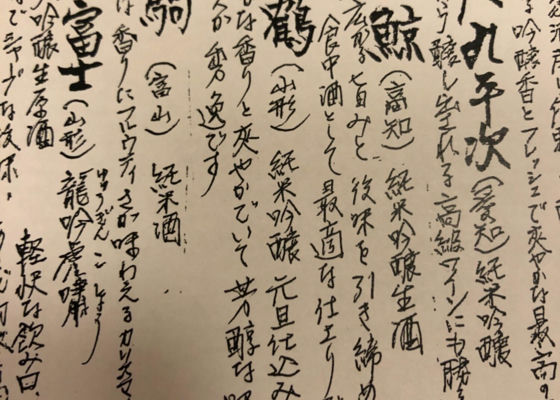 吟醸香とフレッシュで爽やかな最高の
九平次（愛知）純米吟醸
醸し出される高級ワインにも勝る
鯨（高知）純米吟醸生酒
広がる旨みと後味を引き締め
食中酒として最適な仕上り
鶴（山形）純米吟醸 元旦仕込み
な香りと爽やかでいて芳醇な
が秀逸です
（富山）純米酒
な香りにフルウティさが味わえるカリスマ
富士（山形）龍吟虎嘯
りゅうぎんこしょう
吟醸生原酒
でシャープな後味
軽快な飲み口